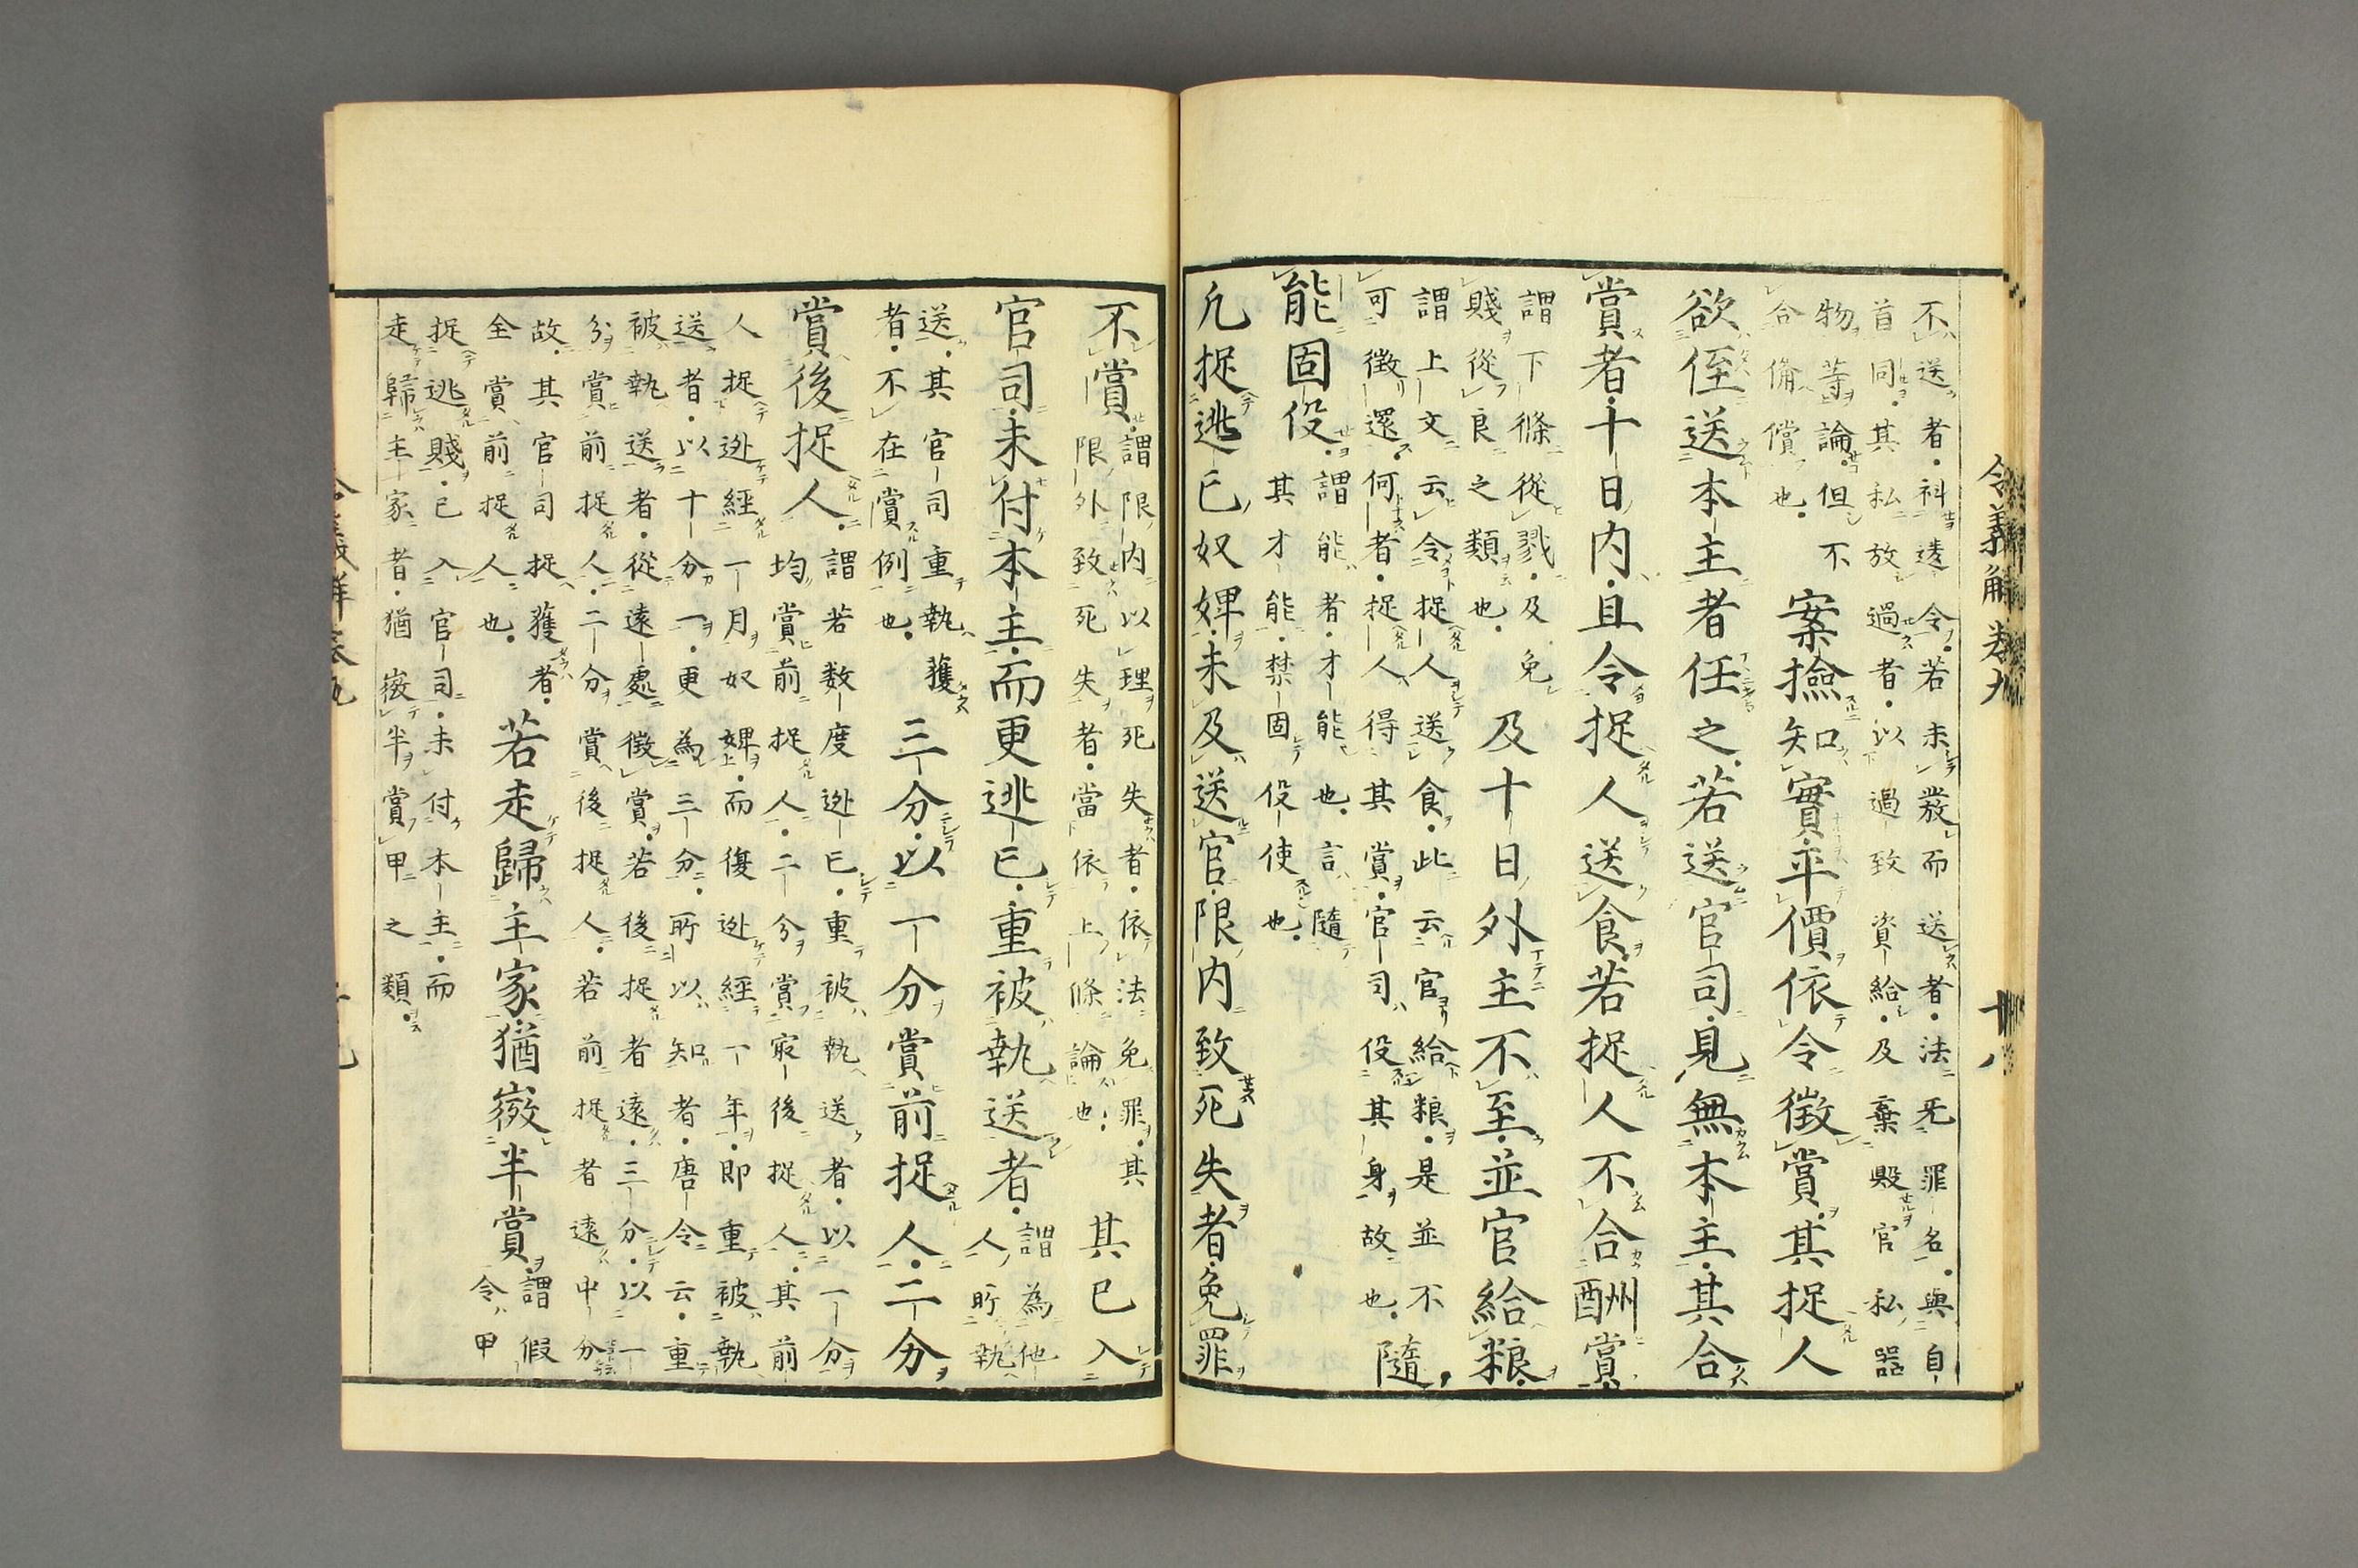 不送者。科違令。若未發而送者。法无罪名。與自
首同。其私放過者。以過致資給。及棄毀官私器
物等論。但不
合備償也。
案撿知實。平價依令徵賞。其捉人
欲侄送本主者任之。若送官司。見無本主。其合
賞者。十日内。且令捉人送食。若捉人不合酬賞。
謂下條從戮。及免
賤從良之類也。
及十日外主不至。並官給粮。
謂上文云。令捉人送食。此云官給粮。是並不
可徵還。何者。捉人得其賞。官司役其身。故也。
隨
能固役。
謂能者。才能也。言隨
其才能。禁固役使也。
凡捉逃亡奴婢。未及送官。限内致死失者。免罪
令義解卷九
十八
不賞。
謂限内以理死失者。依法免罪。其
限外致死失者。當依上條論也。
其已入
官司。未付本主。而更逃亡。重被執送者。
謂為他
人所執
送。其官司重執獲
者。不在賞例也。
三分。以一分賞前捉人。二分
賞後捉人。
謂若数度逃亡。重被執送者。以一分
均賞前捉人。二分賞最後捉人。其前
人捉逃經一月奴婢。而復逃經一年。即重被執
送者。以十分一。更為三分。所以知者。唐令云。重
被執送者。從遠處徵賞。若後捉者遠。三分。以一
分賞前捉人。二分賞後捉人。若前捉者遠。中分
故。其官司捉獲者。
全賞前捉人也。
若走歸主家。猶徴半賞。
謂假
令甲
捉逃賤。已入官司。未付本主。而
走歸主家者。猶徴半賞甲之類。